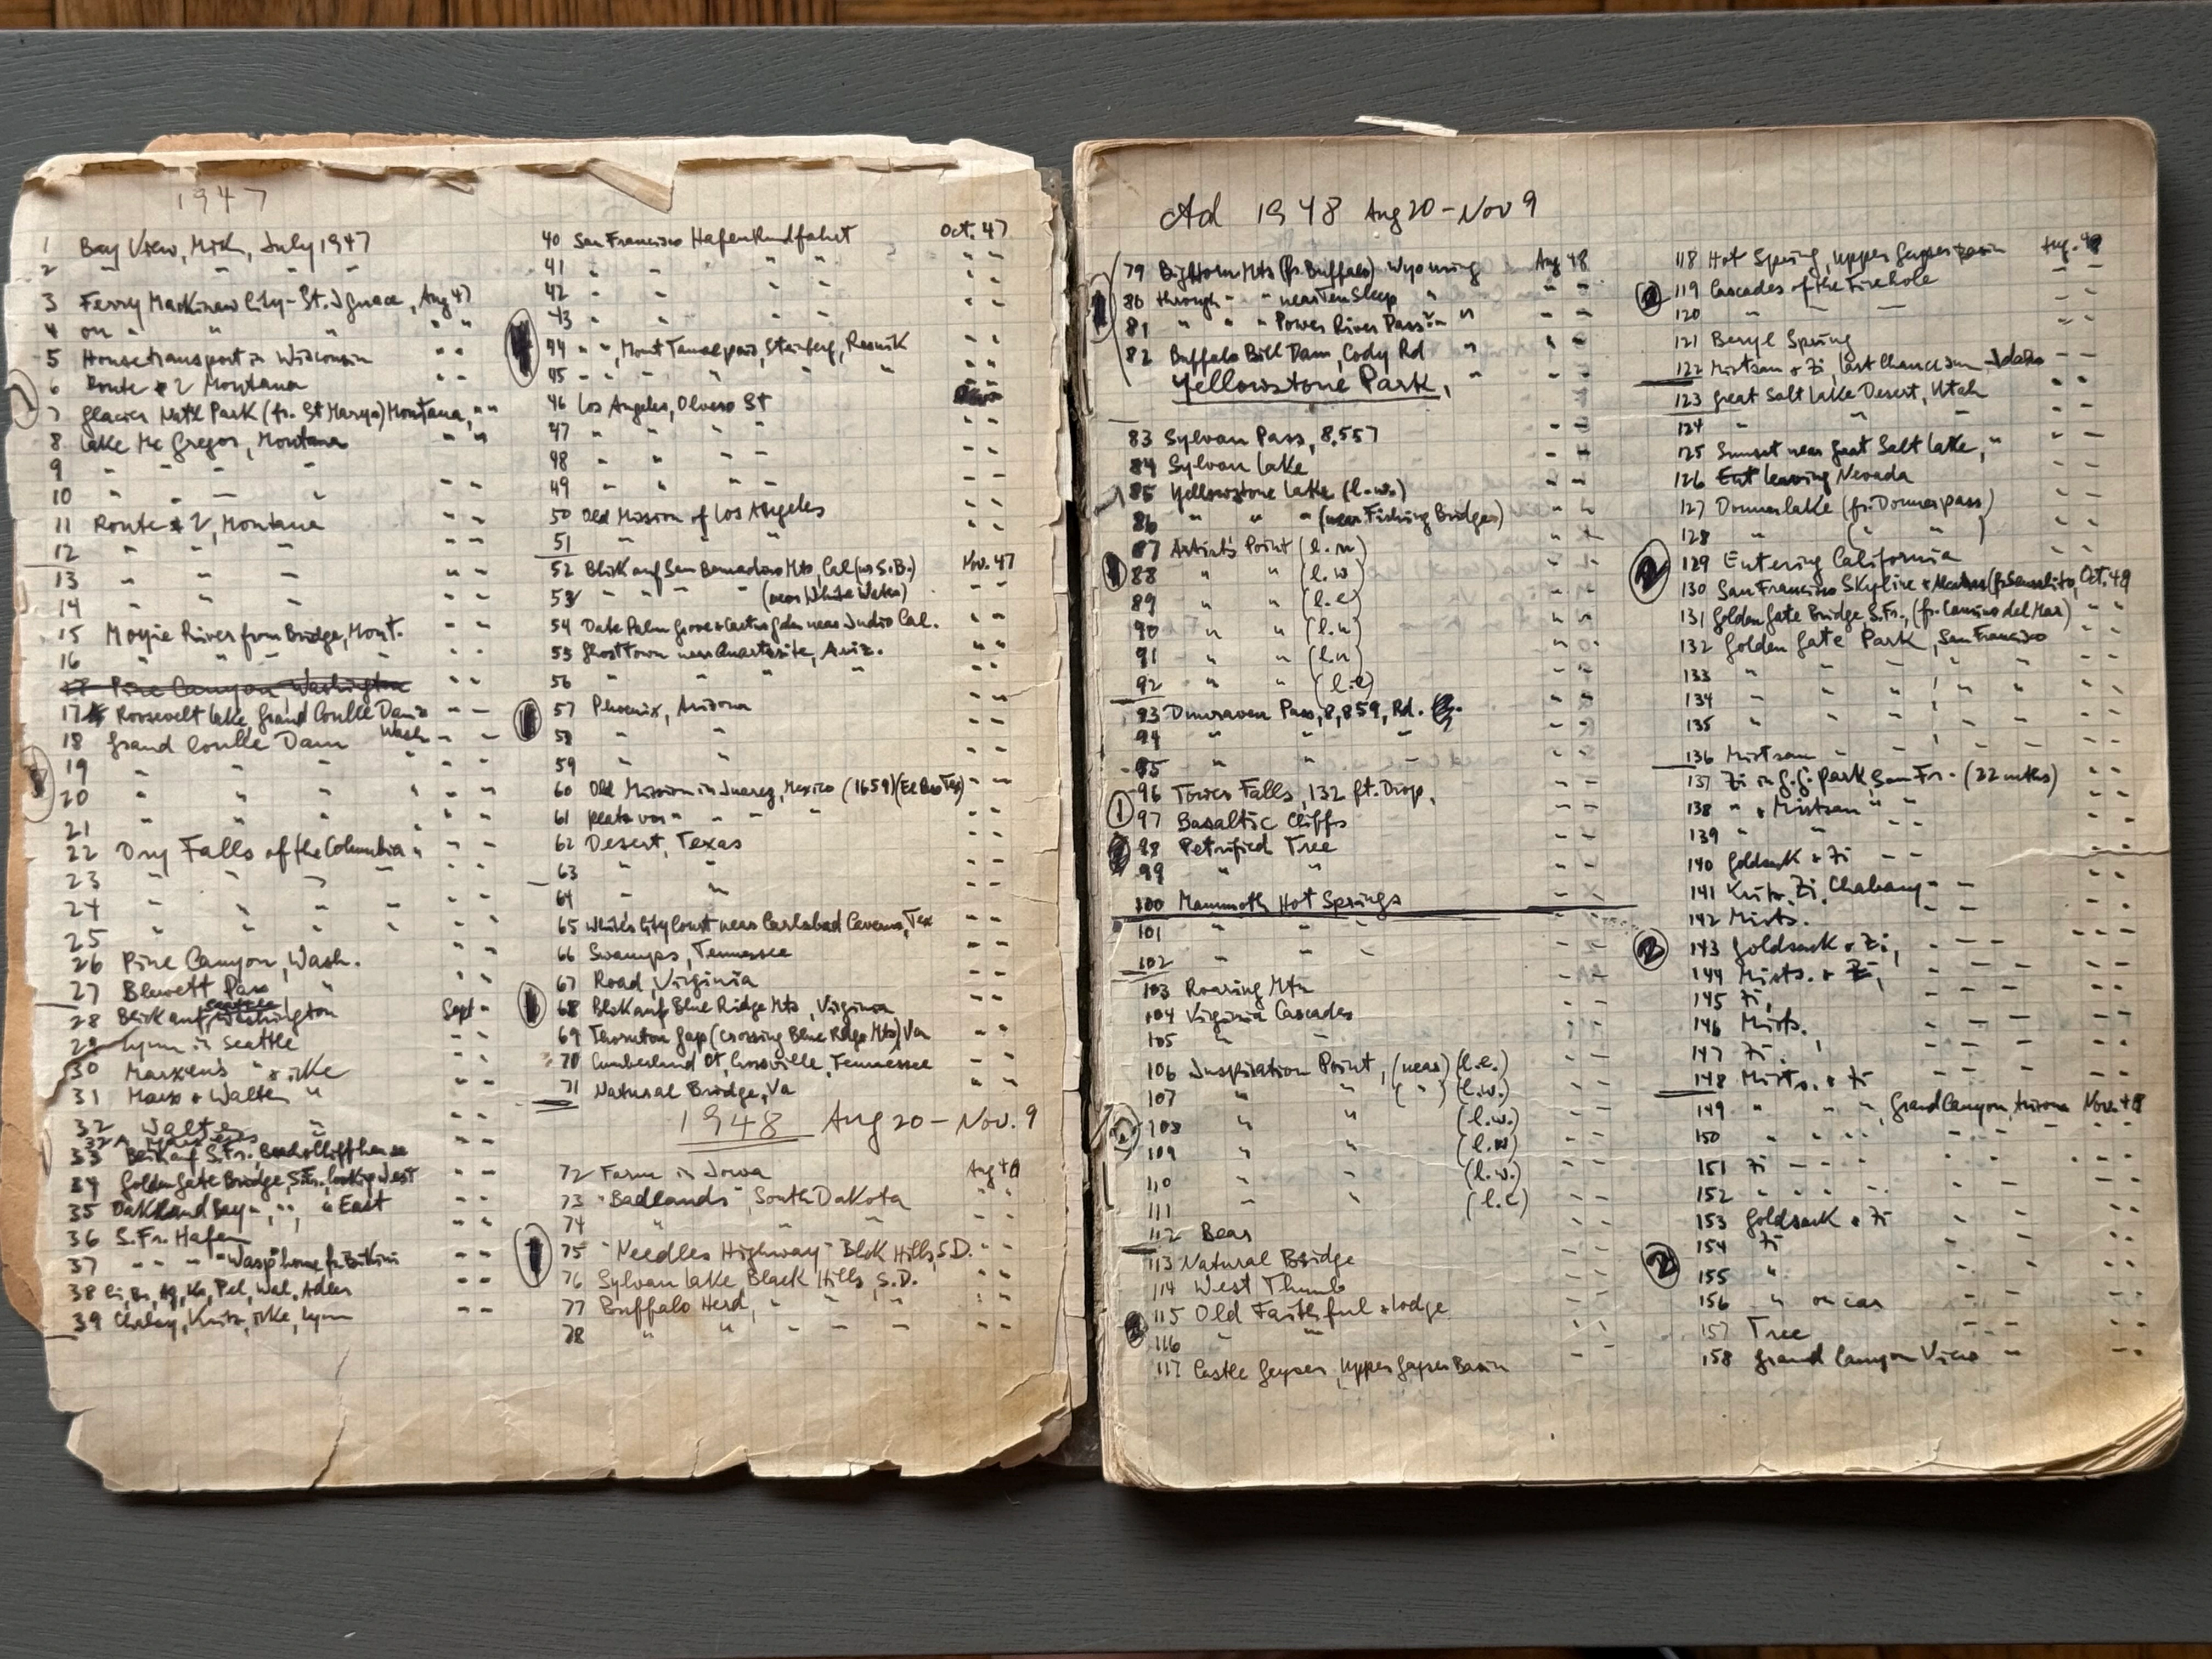 1947
1 Bay View, Mich, July 1947
2 " " " "
3 Ferry Mackinaw City - St. Ignace, Aug 47
4 on " " " "
5 Housetransport in Wisconsin " "
6 Route 2 Montana " "
7 Glacier Natl Park (fr. St Marys) Montana, " "
8 Lake Mc Gregor, Montana " "
9 " " " "
10 " " " " " "
11 Route 2, Montana " "
12 " " " " "
13 " " " " "
14 " " " " "
15 Moyie River from Bridge, Mont. " "
16 " " " " " "
Pine Canyon Washington " "
17 Roosevelt Lake, Grand Coulle Dam " "
Wash
18 Grand Coulle Dam " "
19 " " " "
20 " " " " "
21 " " " " "
22 Dry Falls of the Columbia " " "
23 " " " " "
24 " " " " "
25 " " " " "
26 Pine Canyon, Wash. " "
27 Blewett Pass " " "
28 Blick auf Washington Sept -
29 Lynn in Seattle " "
30 Marxens " & ilke " "
31 Marx + Walter " " "
32 Walter " " "
32A
33 Blick auf S.Fr., Cliffhouse
34 Golden Gate Bridge, S.Fr., looking West " "
35 Oakland Bay ", ", " East " "
36 S.Fr. Hafen " "
37 " " " "Wasp" home fr. Bikini " "
38 Pel, Wal, Adler
39 Chabay, ilke, Lynn " "
40 San Francisco Hafenrundfahrt Oct. 47
41 " " " " " "
42 " " " " " "
43 " " " " " "
44 " ", Mont Tamalpais, " "
45 " " " " " " "
46 Los Angeles, Olvero St
47 " " " " " "
48 " " " " " "
49 " " " " " "
50 Old Mission of Los Angeles " "
51 " " " " "
52 Blick auf San Bernardino Mts, Cal (in S.B.) Nov. 47
53 " " " " (near White Water) " "
54 Date Palm Grove + Cactus gdn near Indio Cal. " "
55 Ghosttown near Quartzsite, Ariz. " "
56 " " " " "
57 Phoenix, Arizona " "
58 " " " "
59 " " " "
60 Old Mission in Juarez, Mexico (1659) (El Paso Tex) " "
61 " " " " "
62 Desert, Texas " "
63 " " " "
64 " " " "
65 White's City Court near Carlsbad Caverns, Tex " "
66 Swamps, Tennessee " "
67 Road, Virginia " "
68 Blick auf Blue Ridge Mts, Virginia " "
69 Thornton Gap (crossing Blue Ridge Mts) Va " "
70 Cumberland Ct, Crossville, Tennessee " "
71 Natural Bridge, Va " "
1948 Aug 20 - Nov. 9
72 Farm in Iowa Aug 48
73 "Badlands", South Dakota " "
74 " " " " "
75 "Needles Highway" Black Hills, S.D. " "
76 Sylvan Lake, Black Hills, S.D. " "
77 Buffalo Herd, " " " " "
78 " " " " " " "
Ad 1948 Aug 20 - Nov 9
79 Bighorn Mts (fr. Buffalo) Wyoming Aug 48
80 through " " near Ten Sleep " " "
81 " " " Power River Pass " " "
82 Buffalo Bill Dam, Cody Rd " " "
Yellowstone Park, " " "
83 Sylvan Pass, 8,557 " "
84 Sylvan Lake " "
85 Yellowstone Lake (l.w.) " "
86 " " " (near Fishing Bridges) " "
87 Artist's Point (l.n) " "
88 " " (l.w) " "
89 " " (l.e) " "
90 " " (l.n) " "
91 " " (l.n) " "
92 " " (l.e) " "
93 Dunraven Pass, 8,859, Rd. " "
94 " " " " "
95 " " " " "
96 Tower Falls, 132 ft. Drop, " "
97 Basaltic Cliffs " "
98 Petrified Tree " "
99 " " " "
100 Mammoth Hot Springs " "
101 " " " " "
102 " " " " "
103 Roaring Mtn " "
104 Virginia Cascades " "
105 " " " "
106 Inspiration Point, (near) (l.e.) " "
107 " " (") (l.w.) " "
108 " " (l.w.) " "
109 " " (l.w) " "
110 " " (l.w.) " "
111 " " (l.e) " "
112 Bear " "
113 Natural Bridge " "
114 West Thumb " "
115 Old Faithful & Lodge " "
116 " " " "
117 Castle Geyser, Upper Gayser Basin " "
118 Hot Spring, Upper Gayser Basin Aug. 48
119 Cascades of the Firehole " "
120 " " " " "
121 Beryl Spring " "
122 Mirtsan & Zi, last chance Inn Idaho " "
123 Great Salt Lake Desert, Utah " "
124 " " " " "
125 Sunset near Great Salt Lake, " " "
126 leaving Nevada " "
127 Donner Lake (fr. Donnerpass) " "
128 " ( " " ) " "
129 Entering California " "
130 San Francisco Skyline & (fr. Sausalito, Oct. 48
131 Golden Gate Bridge, S.Fr., (fr. Camino del Mar) " "
132 Golden Gate Park, San Francisco " "
133 " " " " " " "
134 " " " " " " "
135 " " " " " " "
136 Mirtsan " " " " " "
137 Zi in G.G. park, San Fr. (22 mths) " "
138 " & Mirtsan " " " "
139 " " " "
140 Goldsack & Zi " " " "
141 Zi, Chabany " " " "
142 Mirts. " "
143 Goldsack & Zi, " " " " "
144 Mirts. & Zi, " " " " "
145 Zi, " " " " "
146 Mirts. " " " " "
147 Zi. " " " " "
148 Mirts. & Zi " " " " "
149 " " ", Grand Canyon, Arizona Nov. 48
150 " " " " " " " "
151 Zi " " " " " "
152 " " " " " "
153 Goldsack & Zi " " " "
154 Zi " " " "
155 " " " " "
156 " on car " " " "
157 Tree " " " "
158 Grand Canyon View " " "